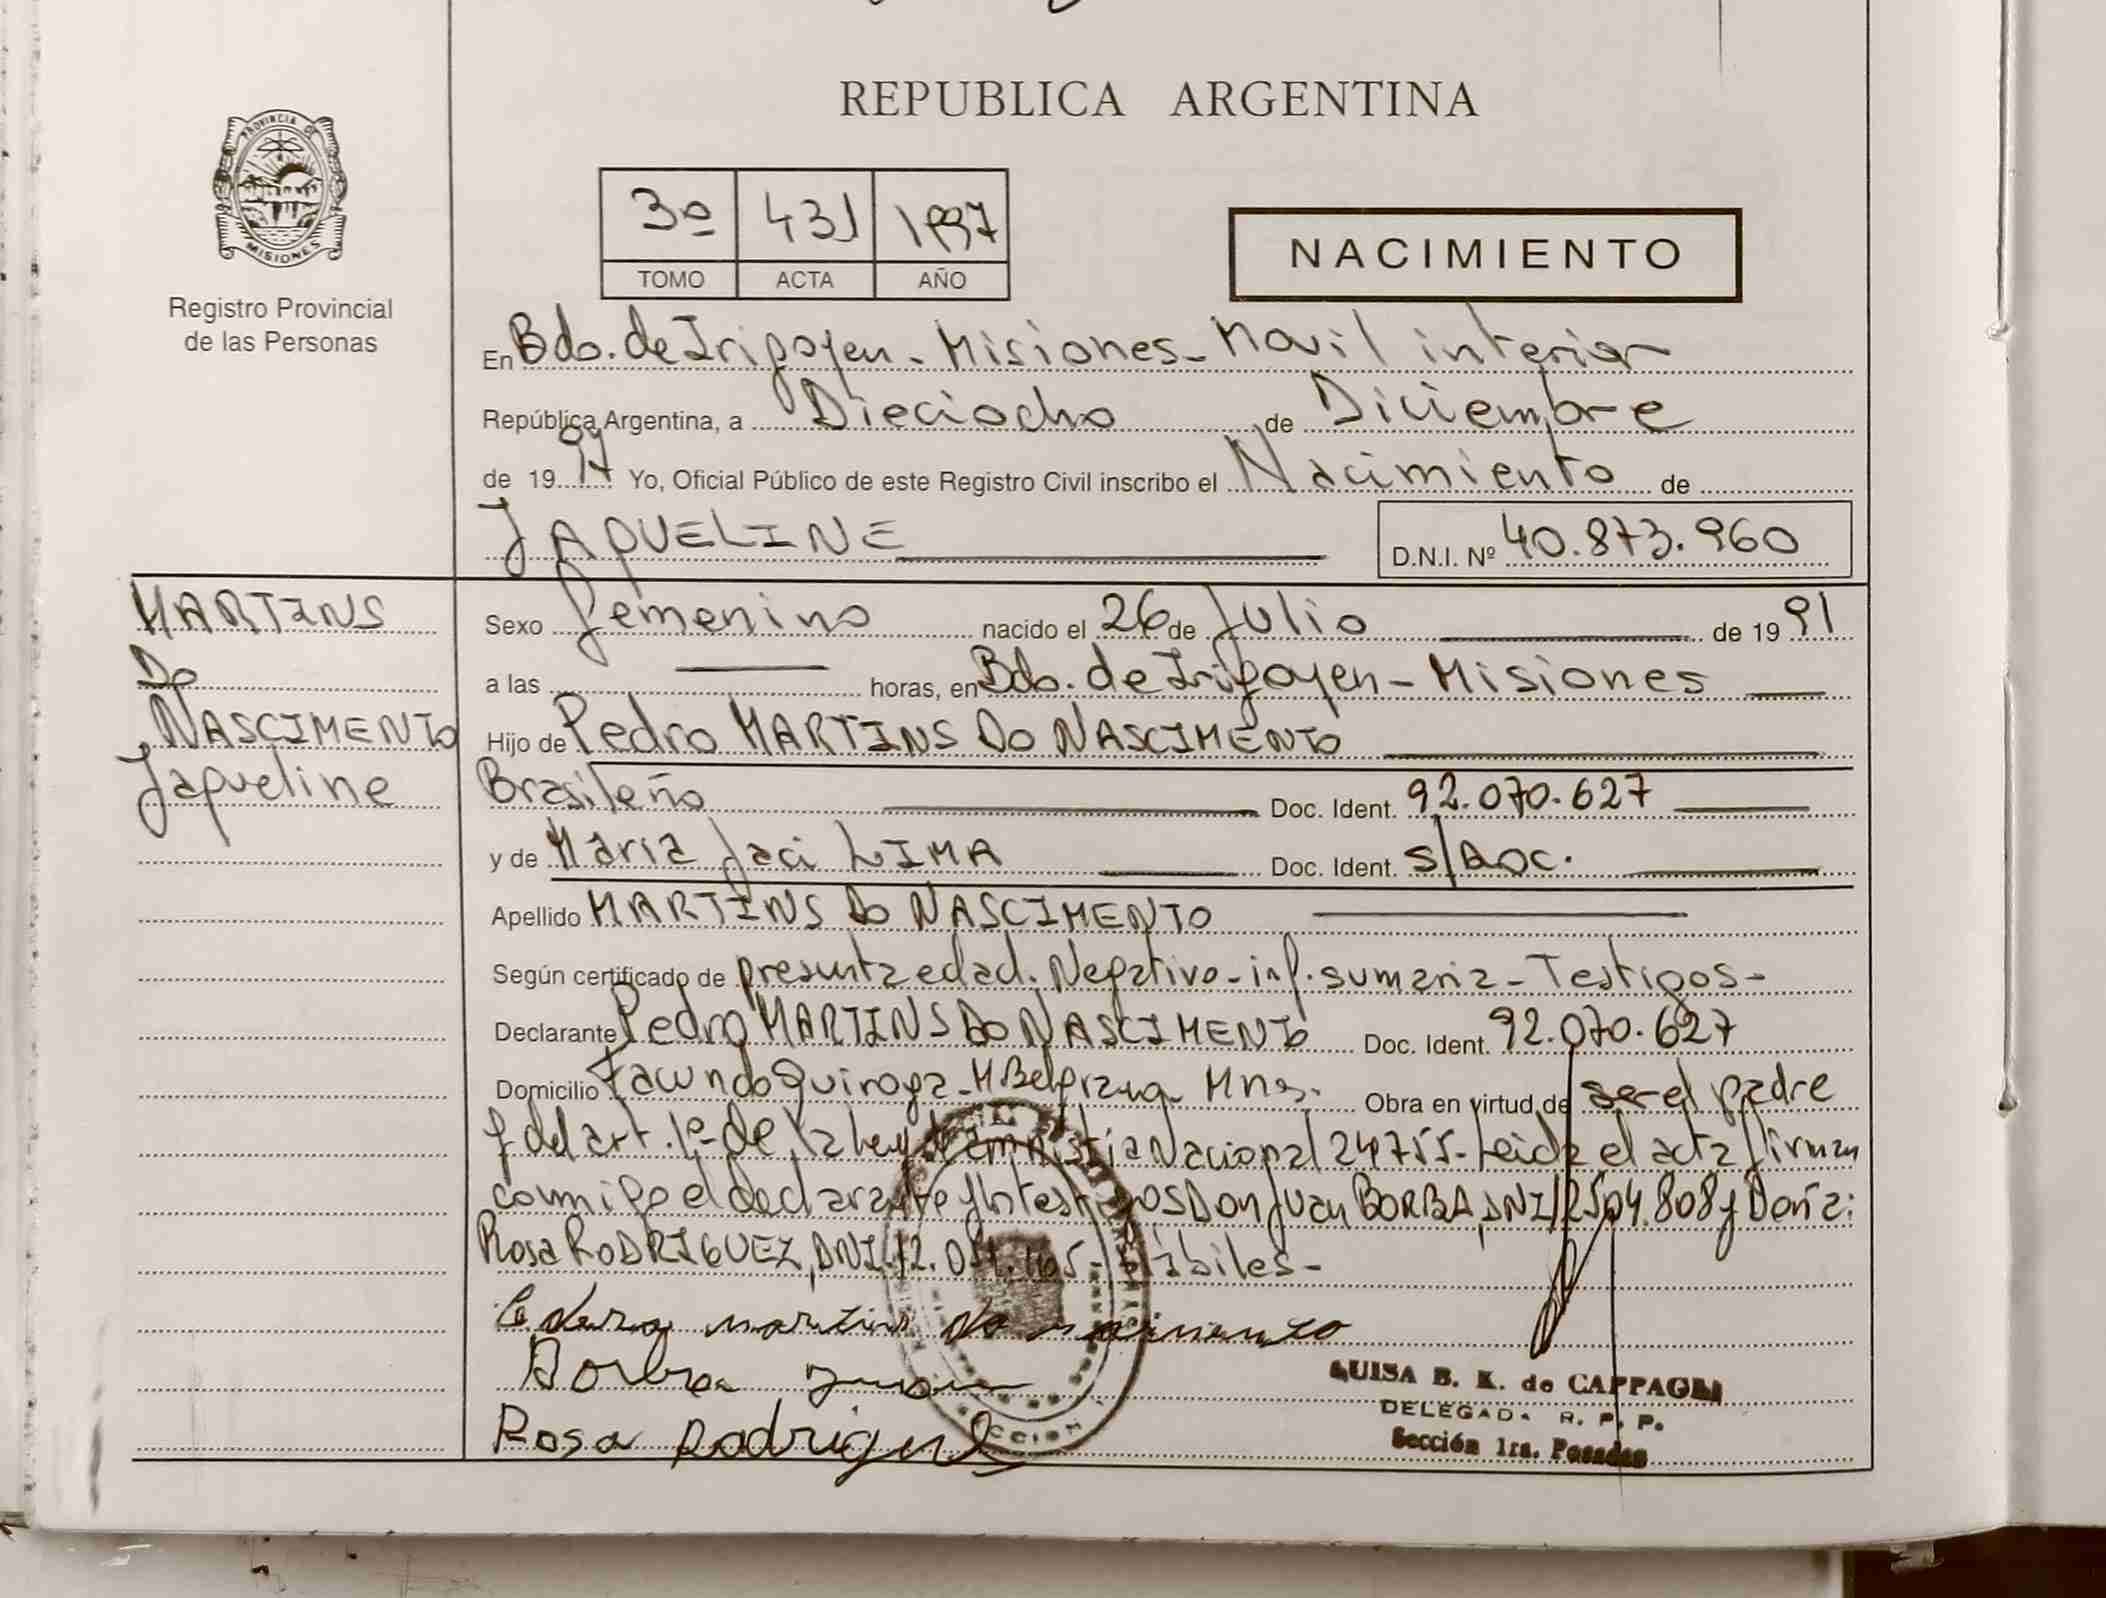 REPUBLICA ARGENTINA
PROVINCIA DE
MISIONES
Registro Provincial
de las Personas
3º 431 1997
TOMO ACTA AÑO
NACIMIENTO
En Bdo. de Irigoyen - Misiones - Movil interior
República Argentina, a Dieciocho de Diciembre
de 19 97 Yo, Oficial Público de este Registro Civil inscribo el Nacimiento de
JAQUELINE D.N.I. Nº 40.873.960
MARTINS
Do
NASCIMENTO
Jaqueline
Sexo femenino nacido el 26 de Julio de 19 91
a las horas, en Bdo. de Irigoyen - Misiones
Hijo de Pedro MARTINS Do NASCIMENTO
Brasileño Doc. Ident. 92.070.627
y de Maria Jaci LIMA Doc. Ident. s/Doc.
Apellido MARTINS Do NASCIMENTO
Según certificado de presunta edad. Negativo - inf. sumaria - Testigos -
Declarante Pedro MARTINS Do NASCIMENTO Doc. Ident. 92.070.627
Domicilio Facundo Quiroga - M. Belgrano - Mnes. Obra en virtud de ser el padre
y del art. 1º de la Ley de amnistia Nacional 24755 - Leida el acta firman
conmigo el declarante y los testigos Don Juan BORBA, DNI 12504.808 y Doña:
Rosa RODRIGUEZ, DNI. 12. hábiles -
martins do nacimento
Borba Juan
Rosa Rodriguez
LUISA B. K. de CAPPAGLI
DELEGADA R. P. P.
Sección 1ra. Posadas